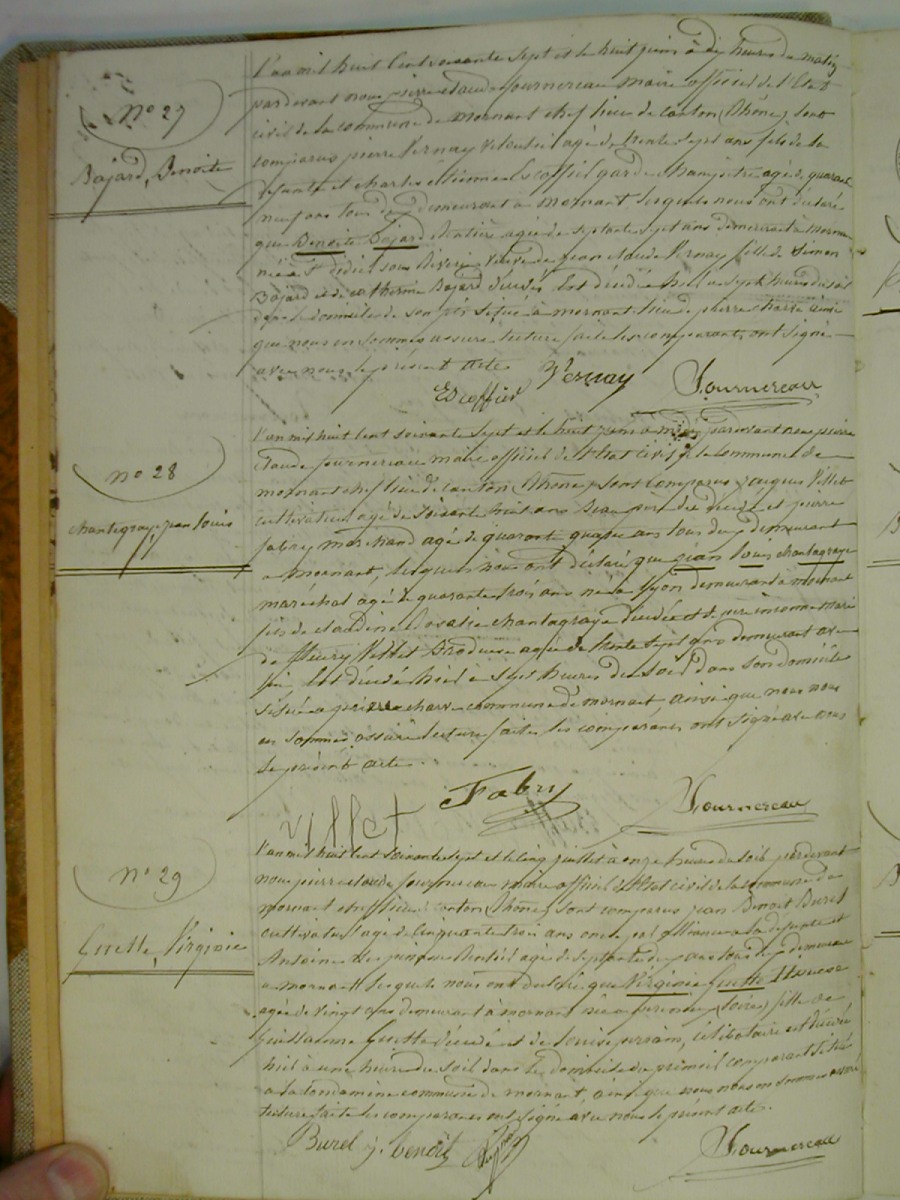 N° 27
Bajard, Benoite
L'an mil huit cent soixante sept et le huit juin à dix heures du matin
pardevant nous pierre claude fournereau maire officiel de l'Etat
civil de la commune de mornant chef lieu de canton (Rhône) sont
comparus pierre Vernay agé de trente sept ans fils de la
defunte et charles etienne Escoffier garde champetre agé de quarante
neuf ans tous deux demeurant à mornant lesquels nous ont déclaré
que Benoite Bajard Rentière agée de septante sept ans demeurant à Mornant
née à St didier sous Riverie veuve de jean claude Vernay fille de Simon
Bajard et de catherine Bajard décédés est décédée hier à sept heures du soir
dans le domicile de son fils située à mornant lieu de pierre charve ainsi
que nous en sommes assuré lecture faite les comparants ont signé
avec nous le présent acte
Escoffier Vernay Fournereau
n° 28
chantegraye, jean louis
L'an mil huit cent soixante sept et le huit juin à midi pardevant nous pierre
Claude fournereau maire officiel de l'Etat civil de la commune de
mornant chef lieu de canton (Rhône) sont comparus jacques Villet
cultivateur agé de soixante huit ans Beau père du décédé et pierre
fabry marchand agé de quarante quatre ans tous deux demeurant
a Mornant, lesquels nous ont déclaré que jean louis chantagraye
maréchal agé de quarante trois ans né à Lyon demeurant à mornant
fils de claudine Rosalie chantagraye décédée et de père inconnu Marié
de fleurie Villet Brodeuse agée de trente sept ans demeurant avec
lui est décédé hier à six heures du soir dans son domicile
située a pierre charve commune de mornant ainsi que nous nous
en sommes assuré lecture faite les comparants ont signé avec nous
le présent acte.
Villet Fabry Fournereau
N° 29
Guette, Virginie
L'an mil huit cent soixante sept et le cinq juillet à onze heures du soir pardevant
nous pierre claude fournereau maire officiel de l'Etat civil de la commune de
mornant chef lieu de canton (Rhône) sont comparus jean Benoit Burel
cultivateur agé de cinquante trois ans oncle par alliance à la defunte et
Antoine Rentier agé de septante deux ans tous deux demeurant
a mornant lesquels nous ont déclaré que Virginie Guette
agée de vingt ans demeurant à mornant née à (Loire) fille de
Guillaume Guette décédé et de Louise célibataire est décédée
hier à une heure du soir dans le domicile du premier comparant située
a la condamine commune de mornant, ainsi que nous nous en sommes assuré
lecture faite les comparants ont signé avec nous le présent acte.
Burel j. benoît Fournereau